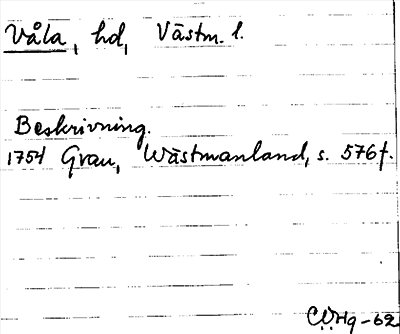 Våla, hd, Västm. l.
Beskrivning.
1754 Grau, Wästmanland, s. 576f.
-62